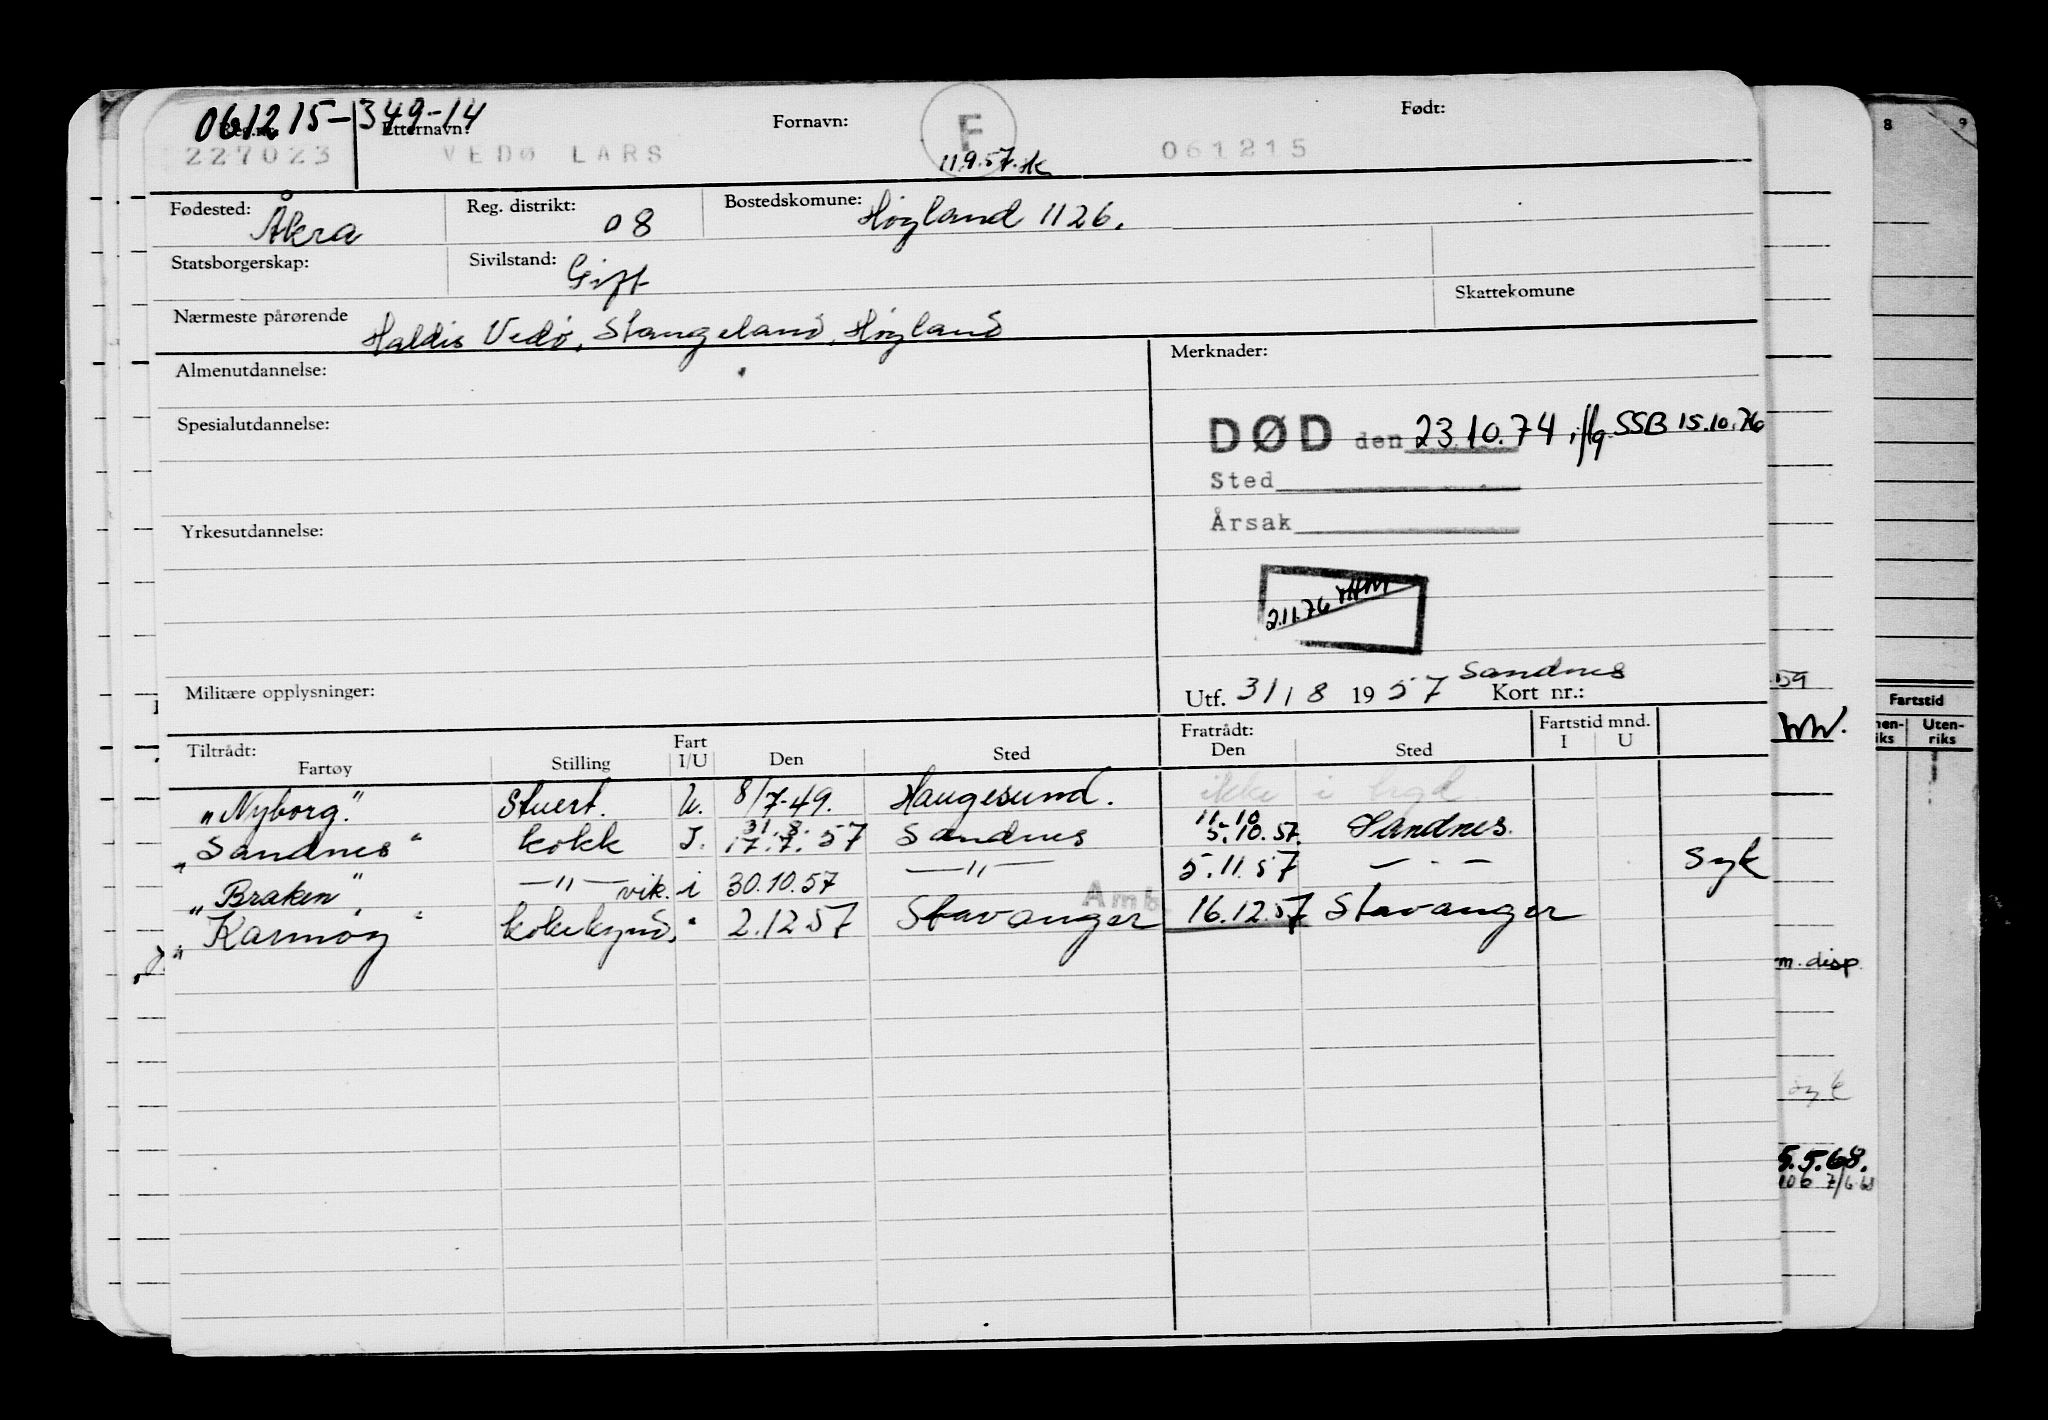 061215-349-14
Etternavn: Fornavn: F Født:
227023 VEDØ LARS 11.9.57. 061215
Fødested: Åkra Reg. distrikt: 08 Bostedskomune: Høyland 1126.
Statsborgerskap: Sivilstand: Gift
Skattekomune
Nærmeste pårørende Haldis Vedø, Stangeland, Høyland
Almenutdannelse: Merknader:
Spesialutdannelse: DØD den 23.10.74 iflg. SSB 15.10.76
Sted
Årsak
Yrkesutdannelse:
2.11.76
Militære opplysninger: Utf. 31/8 1957 Sandnes Kort nr.:
Tiltrådt: Fratrådt: Fartstid mnd.
Fartøy Stilling Fart I/U Den Sted Den Sted I U
"Nyborg." Stuert. U. 8/7-49. Haugesund. ikke i hyd
31. 8. 11.10
"Sandnes" kokk I. 17.7. 57 Sandnes 5.10.57. Sandnes.
"Braken" —"— vik. i 30.10.57 —"— 5.11.57 — " — Syk
"Karmøy" " 2.12.57 Stavanger Amb. 16.12.57 Stavanger
8 9
59
Fartstid
Uten-
riks
m. disp.
syk
5.5.68.